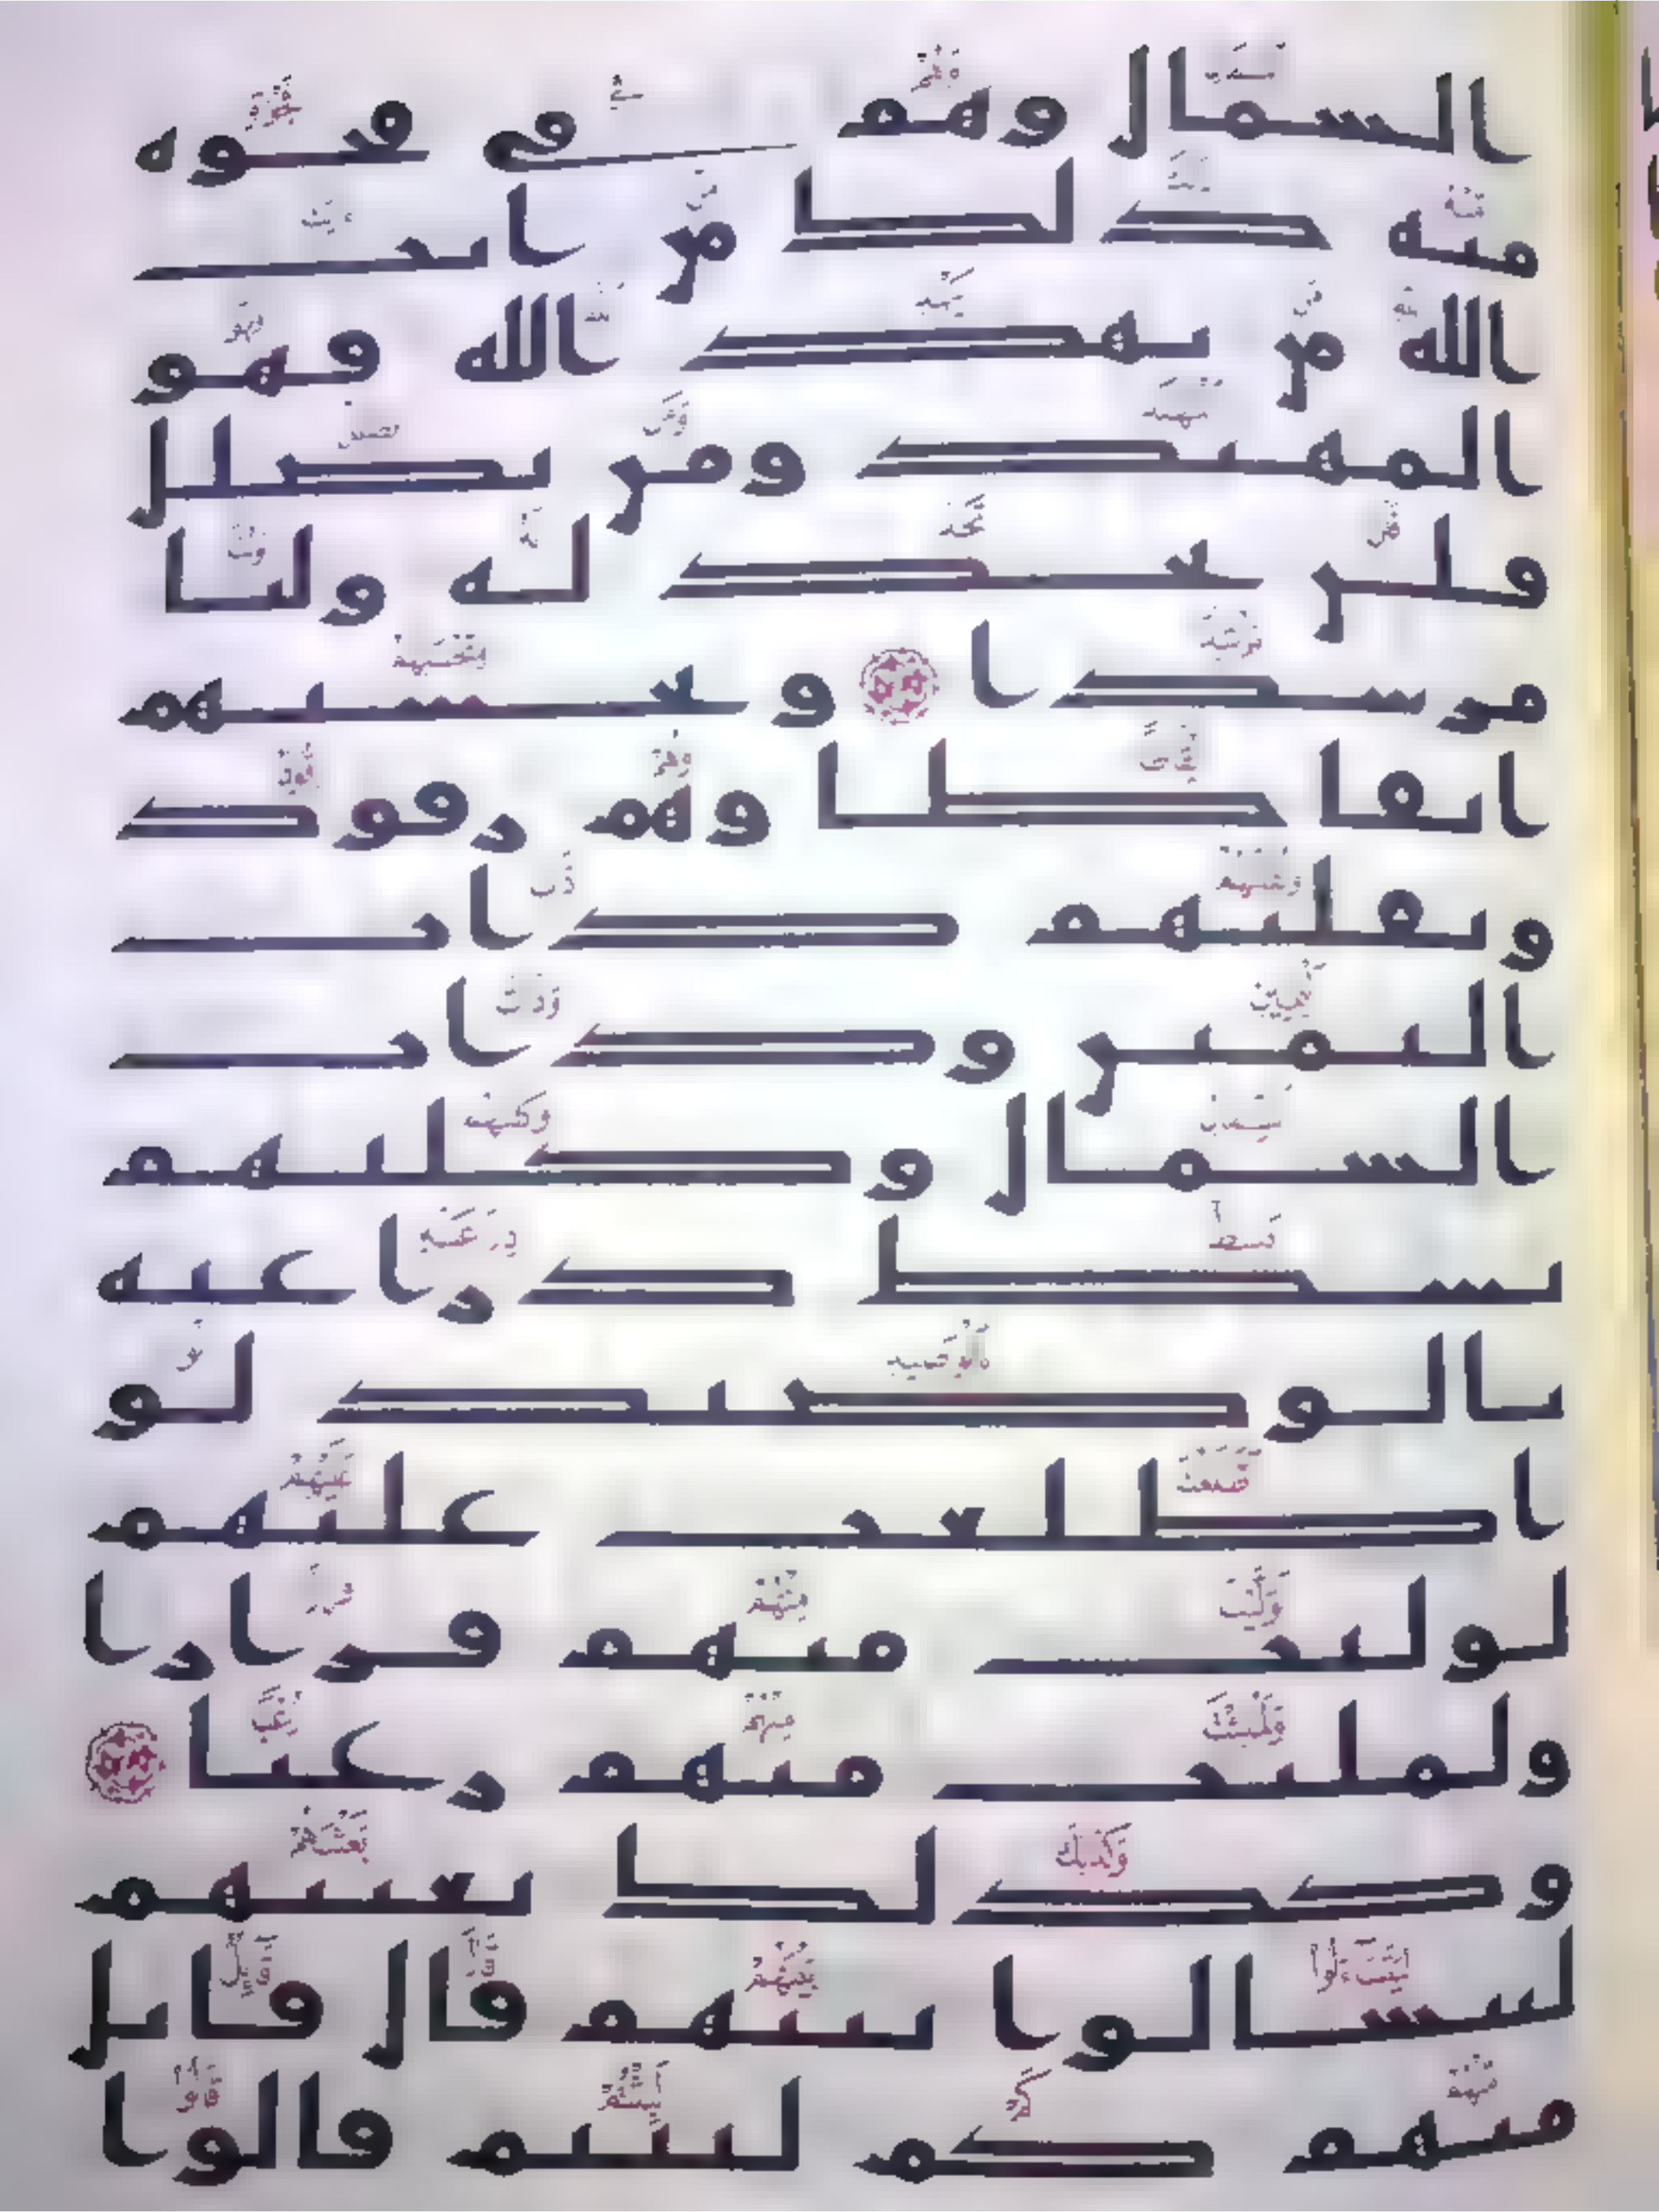 السمال وهم في فجوه
منه ذلك من ايت
الله من يهد الله فهو
المهتد ومن يضلل
فلن تجد له وليا
مرشدا وتحسبهم
ايقاظا وهم رقود
ونقلبهم ذات
اليمين وذات
السمال وكلبهم
بسط ذراعيه
بالوصيد لو
اطلعت عليهم
لوليت منهم فرارا
ولمليت منهم رعبا
وكذلك بعثنهم
ليتسالوا بينهم قال قايل
منهم كم لبثتم قالوا